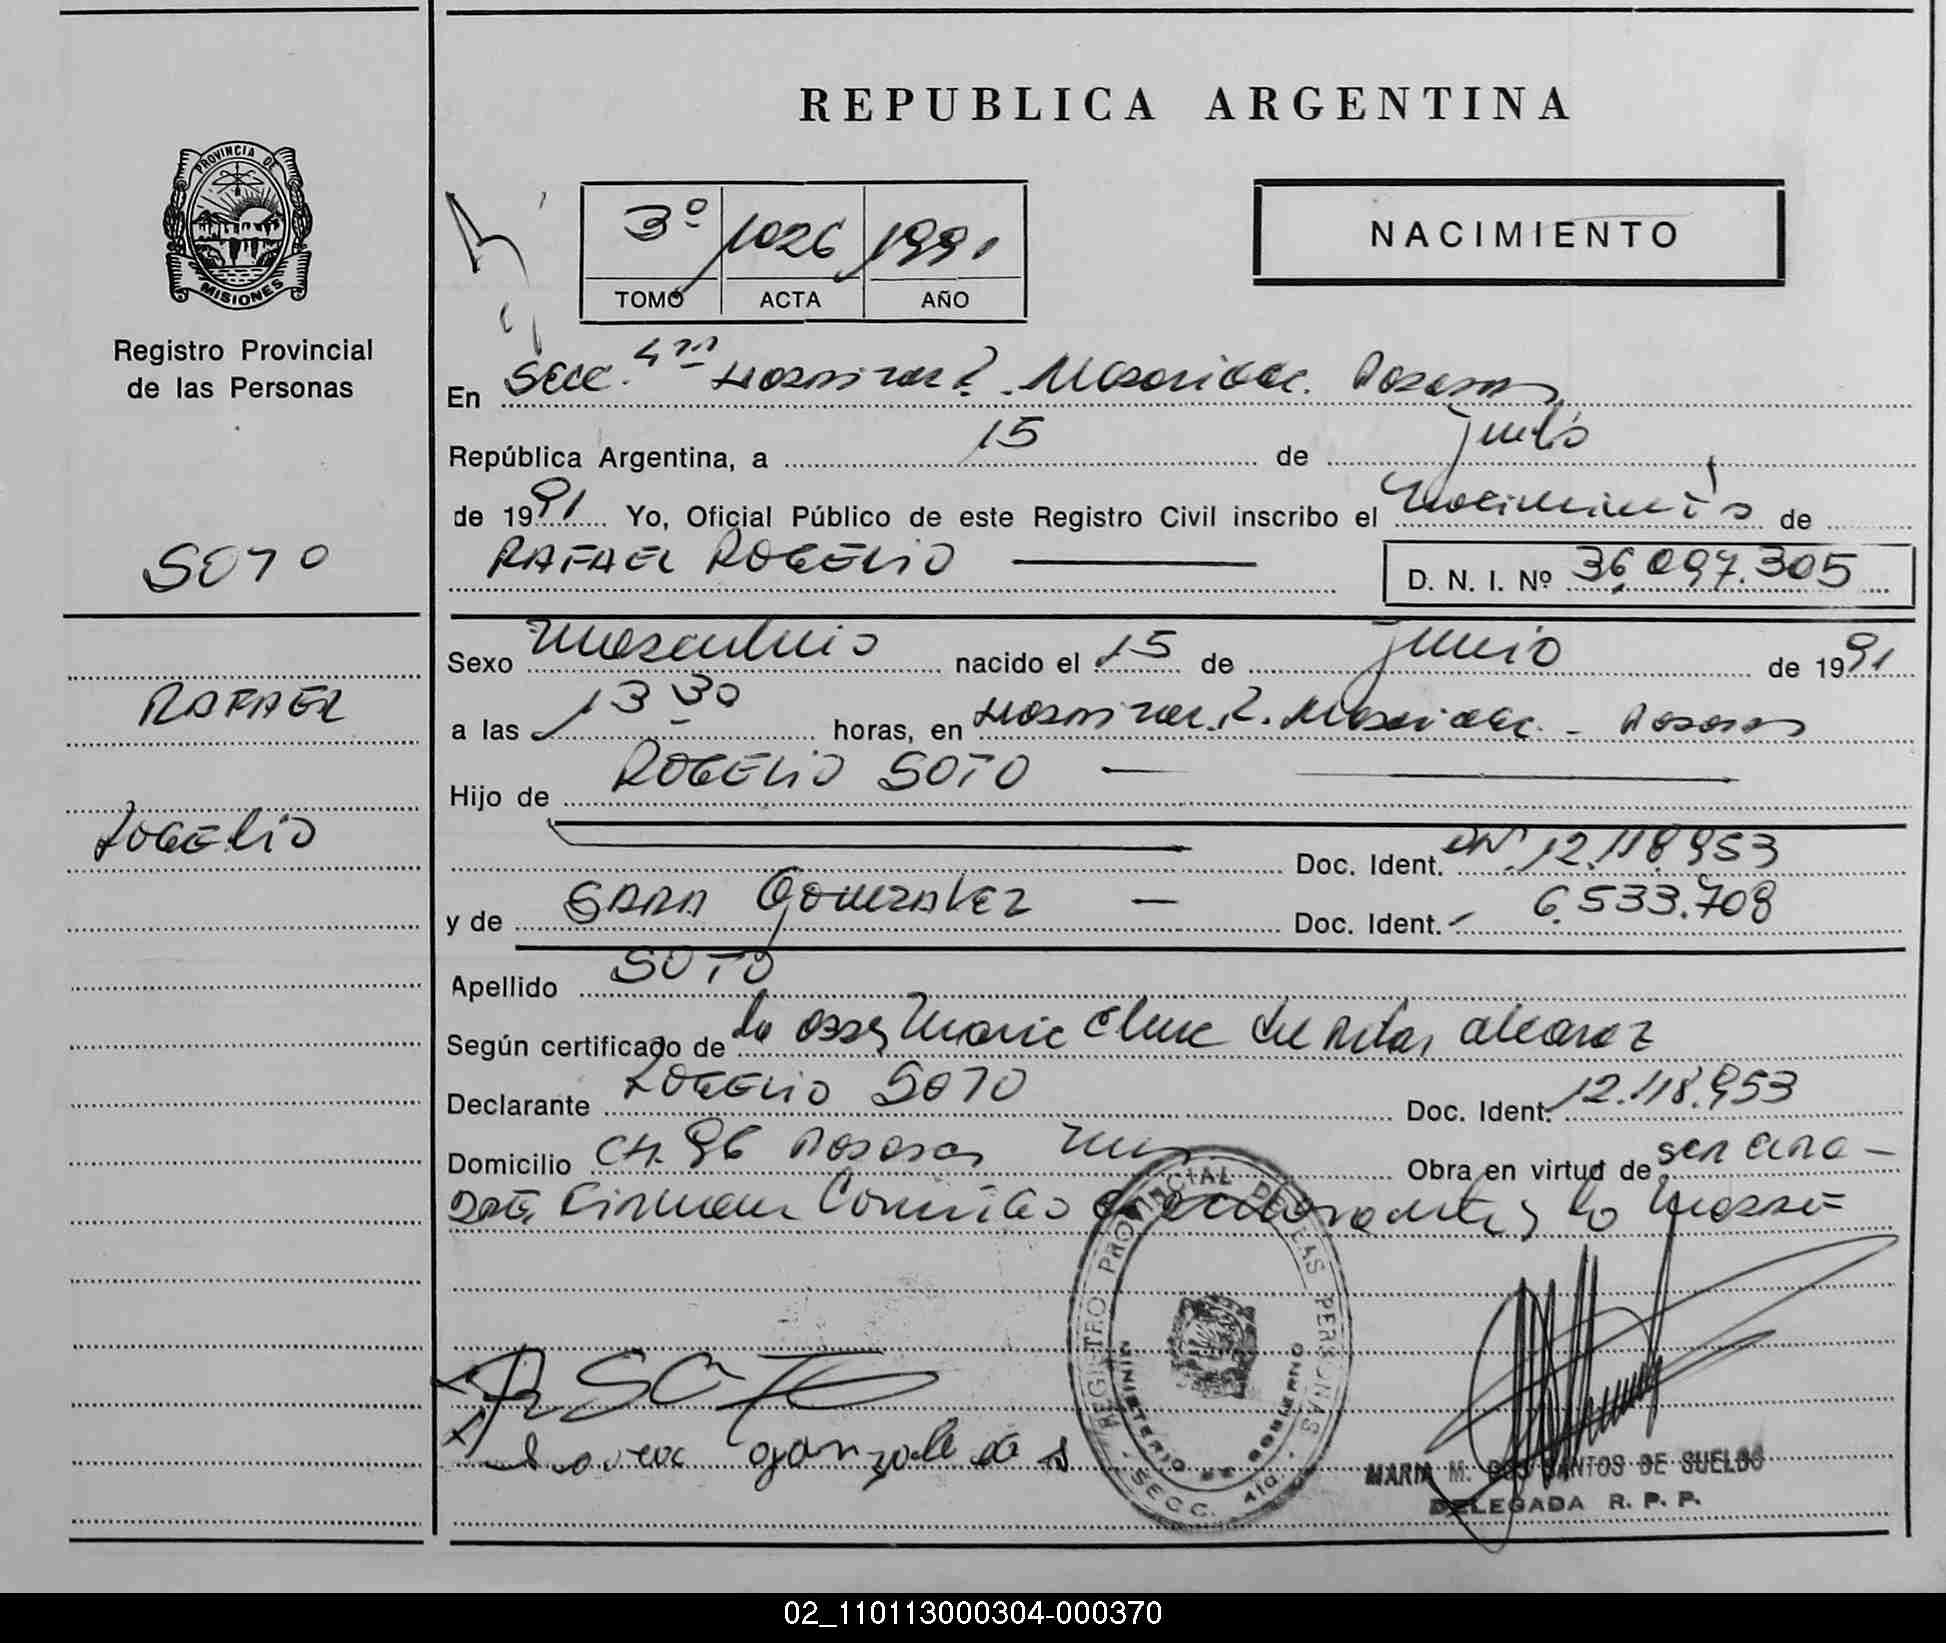 REPUBLICA ARGENTINA
PROVINCIA DE
MISIONES
Registro Provincial
de las Personas
3º 1026 1991
TOMO ACTA AÑO
NACIMIENTO
En Secc. 4ta Hospital R. Madariaga. Posadas
República Argentina, a 15 de Junio
de 1991 Yo, Oficial Público de este Registro Civil inscribo el Nacimiento de
RAFAEL ROGELIO
D. N. I. Nº 36.097.305
SOTO
RAFAEL
ROGELIO
Sexo Masculino nacido el 15 de Junio de 1991
a las 13 30 horas, en Hospital R. Madariaga. - Posadas
Hijo de ROGELIO SOTO
Doc. Ident. DNI. 12.118.953
y de SARA GONZALEZ Doc. Ident. 6.533.708
Apellido SOTO
Según certificado de la Maria del Pilar Alcaraz
Declarante ROGELIO SOTO Doc. Ident. 12.118.953
Domicilio CH. 96 Posadas Obra en virtud de ser
Firman la
R SOTO
REGISTRO PROVINCIAL DE LAS PERSONAS
MINISTERIO DE GOBIERNO
- SECC. 4ta. -
MARIA M. DOS SANTOS DE SUELDO
DELEGADA R. P. P.
02_110113000304-000370